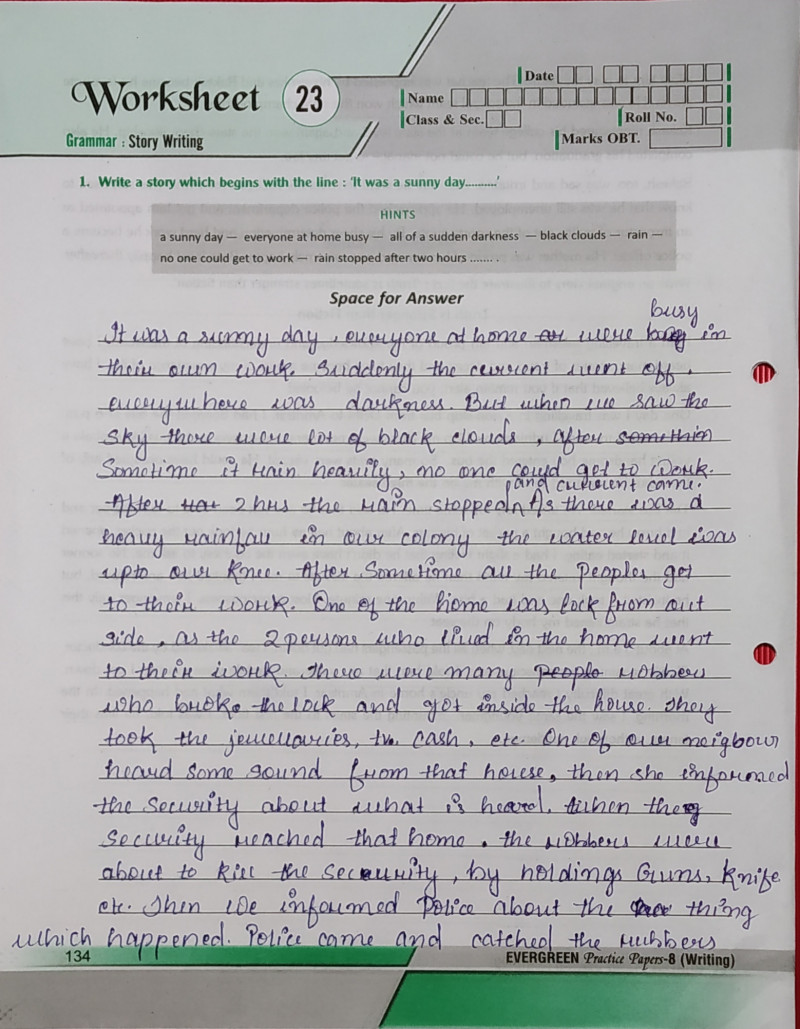 Worksheet 23
Date
Name
Class & Sec.
Roll No.
Marks OBT.
Grammar : Story Writing
1. Write a story which begins with the line : 'It was a sunny day..........'
HINTS
a sunny day — everyone at home busy — all of a sudden darkness — black clouds — rain —
no one could get to work — rain stopped after two hours ....... .
Space for Answer
busy
It was a sunny day , everyone at home were in
their own work. Suddonly the current went off .
everywhere was darkness. But when we saw the
sky there were lot of black clouds , after somethin
Sometime it rain heavily, no one could get to work.
and current came.
After 2 hrs the rain stopped As there was a
heavy rainfall in our colony the water level was
upto our knee. After Sometime all the peoples got
to their work. One of the home was lock from out
side , as the 2 persons who lived in the home went
to their work. There were many people robbers
who broke the lock and got inside the house. They
took the jewellaries, tv. cash , etc. One of our neigbour
heard some sound from that house, then she informed
the security about what is heard. When the
security reached that home . the robbers were
about to kill the security , by holdings Guns, knife
etc. Then we informed Police about the thing
which happened. Police came and catched the rubbers
134
EVERGREEN Practice Papers-8 (Writing)